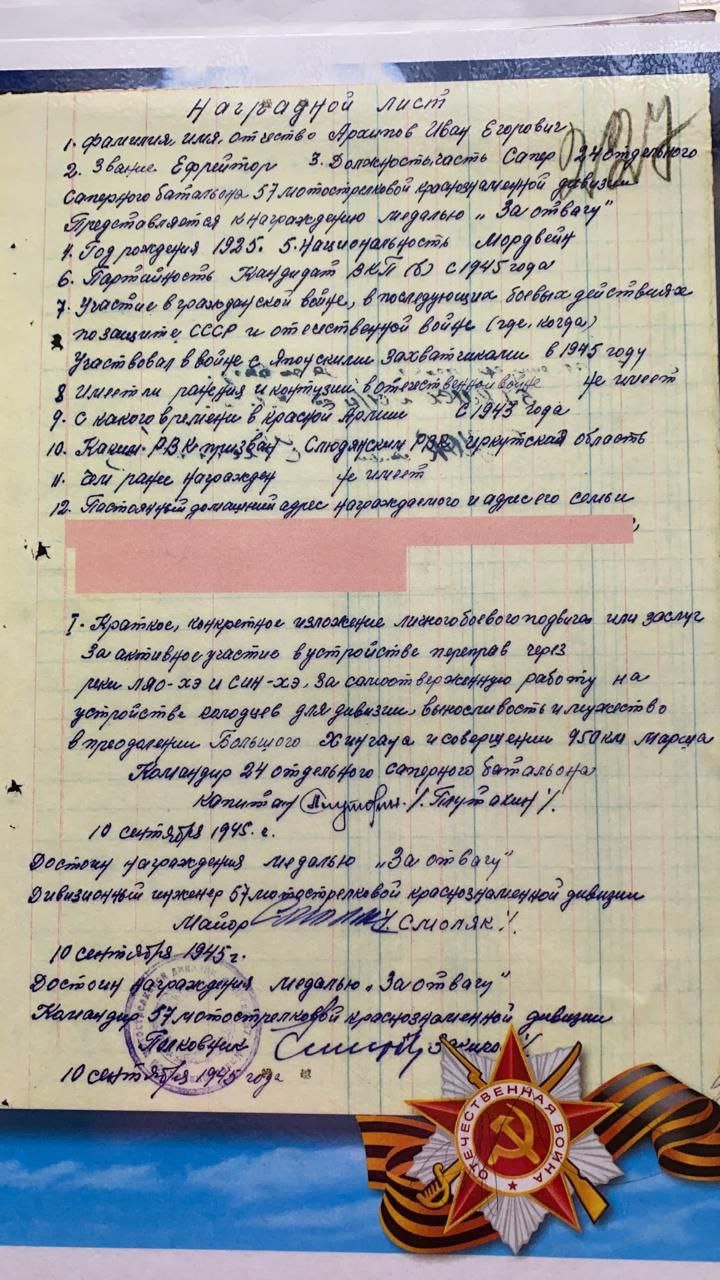 Наградной лист
227
1. Фамилия, имя, отчество Архипов Иван Егорович
2. Звание Ефрейтор 3. Должность, часть Сапер 24 отдельного
саперного батальона 57 мотострелковой краснознаменной дивизии
Представляется к награждению медалью „За отвагу"
4. Год рождения 1925. 5. Национальность Мордвин
6. Партийность Кандидат ВКП(б) с 1945 года
7. Участие в гражданской войне, в последующих боевых действиях
по защите СССР и отечественной войне (где, когда)
Участвовал в войне с Японскими захватчиками в 1945 году
8 Имеет ли ранения и контузии в отечественной войне не имеет
9. С какого времени в красной Армии с 1943 года
10. Каким РВК призван Слюдянским РВК Иркутская область
11. Чем ранее награжден не имеет
12. Постоянный домашний адрес награждаемого и адрес его семьи
I. Краткое, конкретное изложение личного боевого подвига или заслуг
За активное участие в устройстве переправ через
реки ЛЯО-ХЭ и СИН-ХЭ, за самоотверженную работу на
устройстве колодцев для дивизии, выносливость и мужество
в преодолении Большого Хингана и совершении 950 км марша
Командир 24 отдельного саперного батальона
капитан
10 сентября 1945 г.
Достоин награждения медалью „За отвагу"
Дивизионный инженер 57 мотострелковой краснознаменной дивизии
Майор /. Смоляк /.
10 сентября 1945 г.
Достоин награждения медалью „За отвагу"
Командир 57 мотострелковой краснознаменной дивизии
Полковник
10 сентября 1945 года
ОТЕЧЕСТВЕННАЯ ВОЙНА